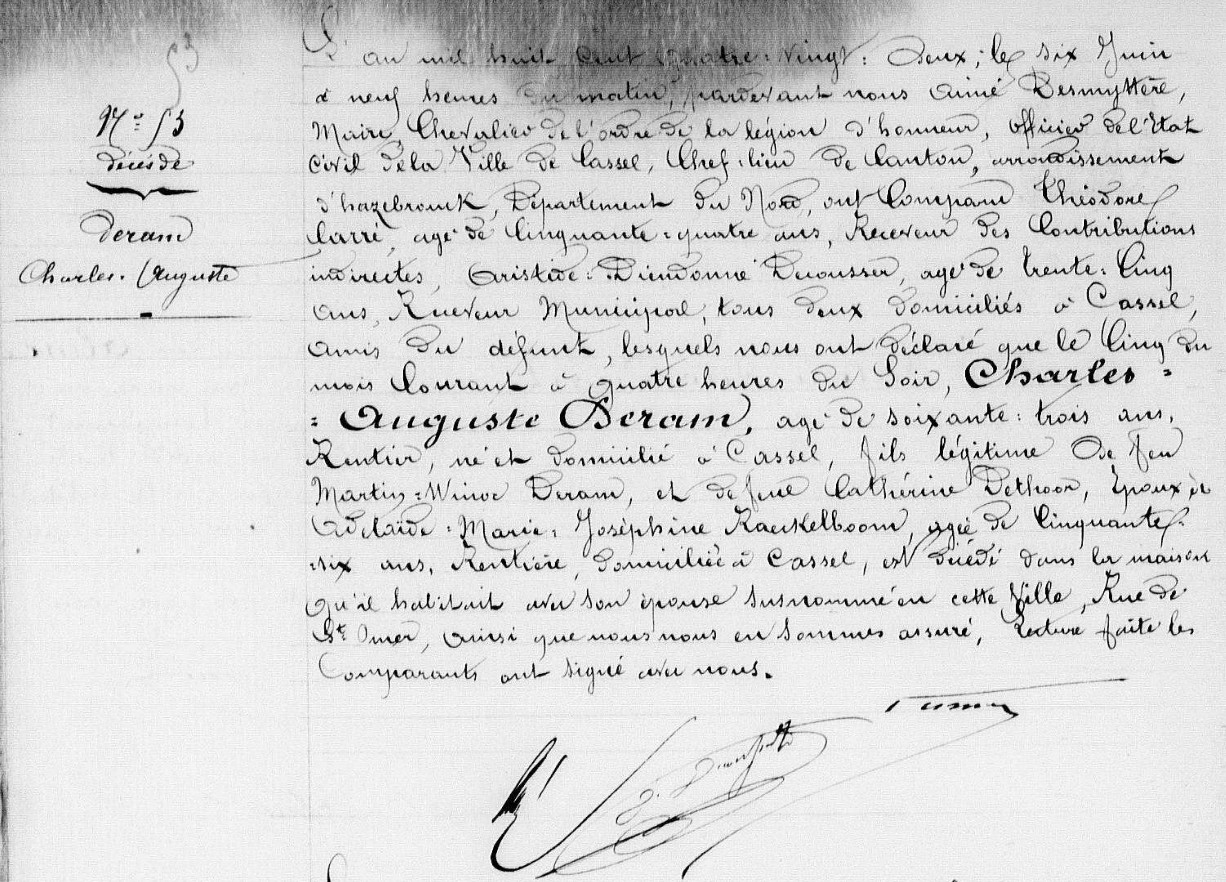 53
N.º 53
décès de
Deram
Charles-Auguste
L'an mil huit cent quatre-vingt-deux, le six Juin
à neuf heures du matin, pardevant nous Aimé Desmyttère,
Maire, Chevalier de l'ordre de la légion d'honneur, officier de l'Etat
Civil de la Ville de Cassel, Chef-lieu de Canton, arrondissement
d'hazebrouck, Département du Nord, ont Comparu Théodore
Carré, agé de Cinquante-quatre ans, Receveur des Contributions
indirectes, Aristide-Dieudonné agé de trente-Cinq
ans, Receveur Municipal, tous deux domiciliés à Cassel,
Amis du défunt, lesquels nous ont déclaré que le Cinq du
mois Courant à quatre heures du Soir, Charles =
= Auguste Deram, agé de soixante-trois ans,
Rentier, né et domicilié à Cassel, fils légitime de feu
Martin-Winoc Deram, et de feue Cathérine Dethoor, Epoux de
Adelaïde-Marie-Joséphine Kaeckelboom, agée de Cinquante-
-six ans, Rentière, domiciliée à Cassel, est décédé dans la maison
Qu'il habitait avec son épouse susnommé en cette Ville, Rue de
St. Omer, ainsi que nous nous en sommes assuré, Lecture faite les
Comparants ont signé avec nous.